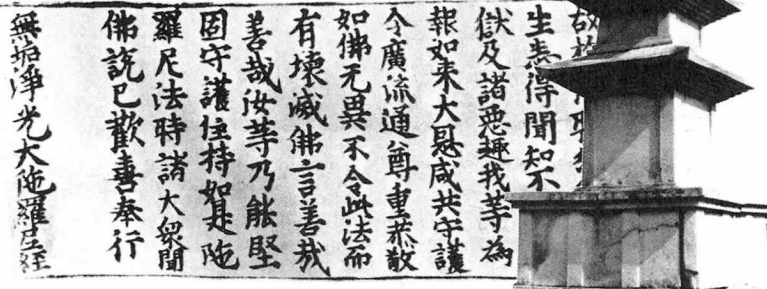 生悉得聞知不
獄及諸惡趣我等為
報如来大恩咸共守護
令廣流通尊重恭敬
如佛无異不令此法而
有壞滅佛言善哉
善哉汝等乃能堅
固守護住持如是陁
羅尼法時諸大衆聞
佛說已歡喜奉行
無垢淨光大陁羅尼経